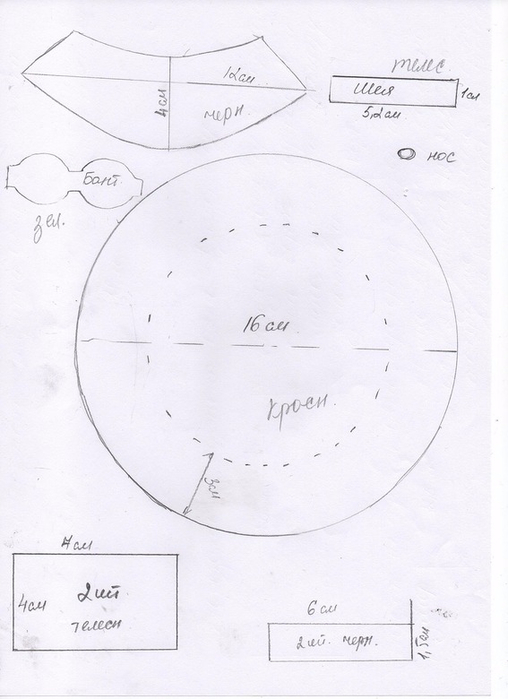 12см
4см
черн.
телес.
шея
1см
5,2см
Бант.
зел.
нос
16см
красн.
3см
7см
4см
2шт
телесн
6см
2шт. черн.
1,5см